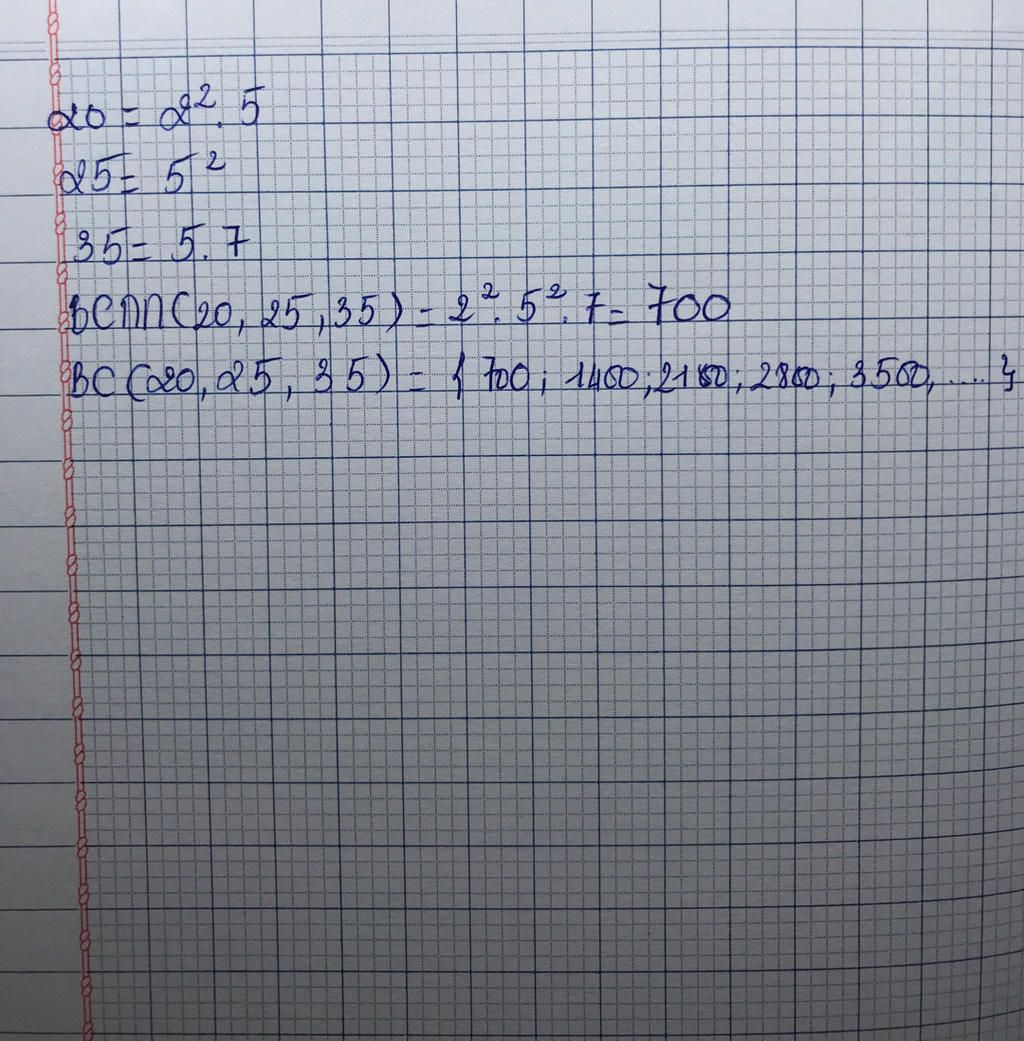 20 = 2². 5
25 = 5²
35 = 5.7
BCNN(20, 25, 35) = 2². 5². 7 = 700
BC(20, 25, 35) = { 700; 1400; 2100; 2800; 3500, ..... }